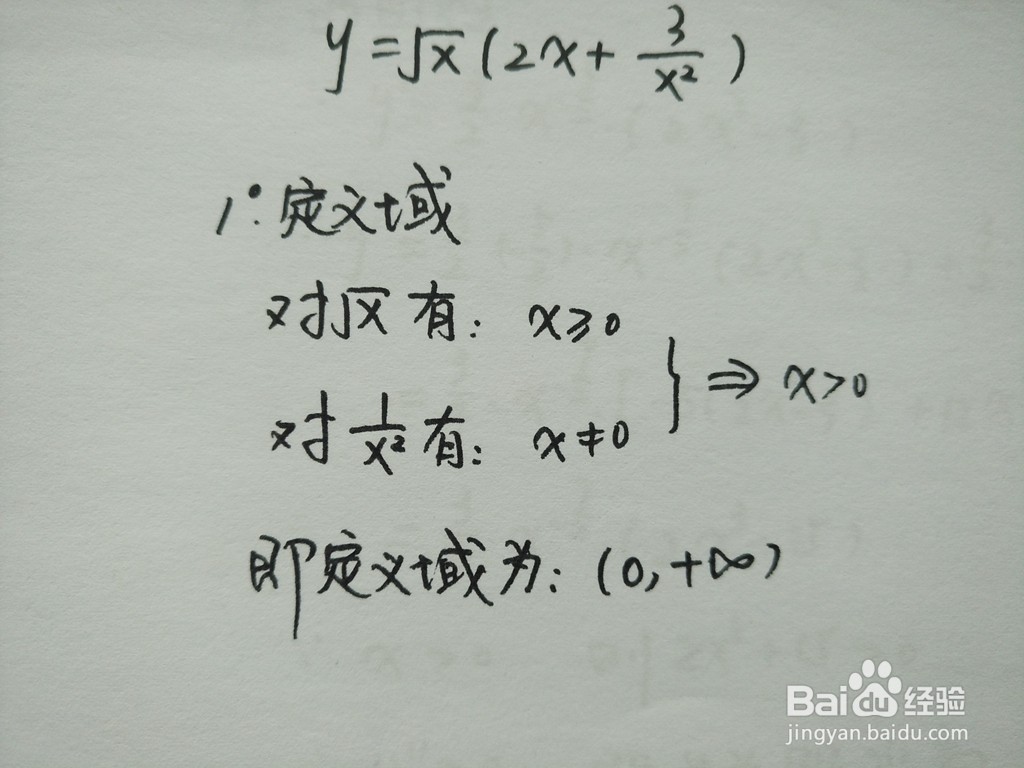 y=√x(2x+3/x²)
1°:定义域
对√x有: x≥0
} ⇒ x>0
对1/x²有: x≠0
即定义域为: (0,+∞)
Bai du 经验
jingyan.baidu.com